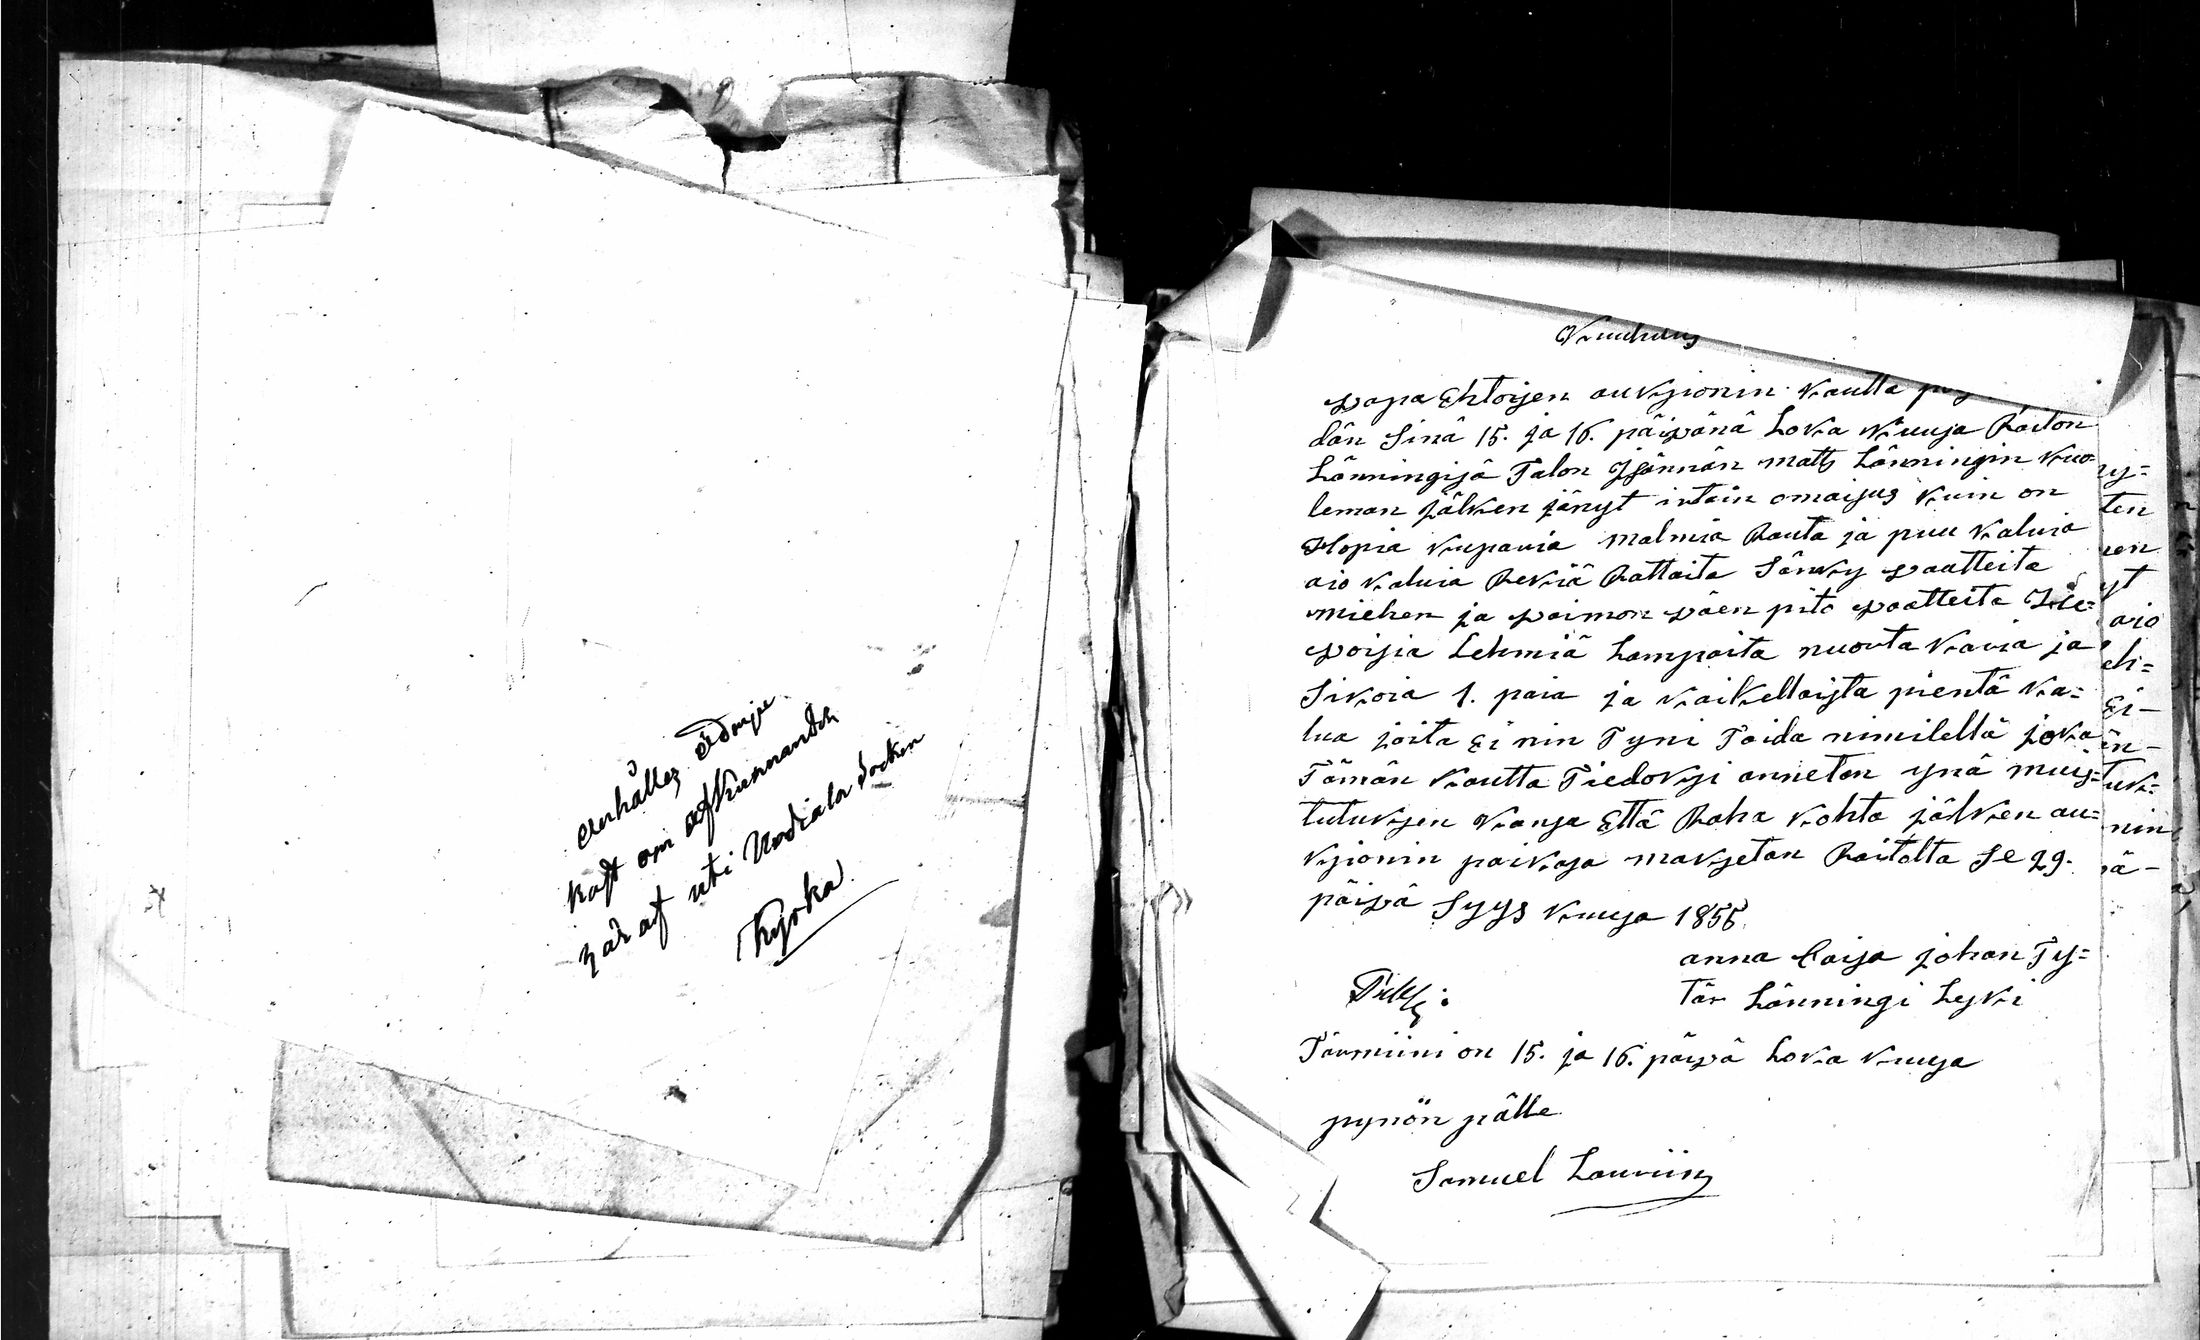 anhålles ödmju
kast om afkunnandet
här af uti Urdiala Socken
Kyrka
Kuulutus
vapa Ehtoisen aukzionin kautta py
dän Sinä 15. ja 16. päivänä Loka Kuusa Raiton
Länningisä Talon Isännän matts Länningin kuo=
leman jälken jänyt irtain omaisus kuin on
Hopia kuparia malmia Rauta ja puu kaluia
aio kaluia Rekiä Rattaita Sänky vaatteita
miehen ja vaimon väen pito vaatteita
Lehmiä Lampaita nuorta karia ja
Sikoia 1. paia ja kaikellaista pientä ka=
lua joita Ei nin Tyni Taida nimitellä joka
Tämän kautta Tiedoksi anneton ynä muis=
tutuksen kansa Että Raha kohta jälken au=
kzionin paikasa maksetan Raitolta Se 29.
päivä Syys kuusa 1855
anna Caisa johan Ty=
tär Länningi Leski
Tärmiini on 15. ja 16. päivä Loka kuusa
pynön pälle
Samuel Lauriin
ny=
ten
nen
yt
aio
eh=
Ei-
än-
tuk=
nin
vä-